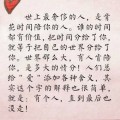 世上最奢侈的人，是肯
花时间陪你的人。谁的时间
都有价值，把时间分给了你，
就等于把自己的世界分给了
你。世界那么大，有人肯陪
你，是多大的情分！人们总
给“爱”添加各种含义，其
实这个字的解释也很简单，
就是：有个人，直到最后也
没走！